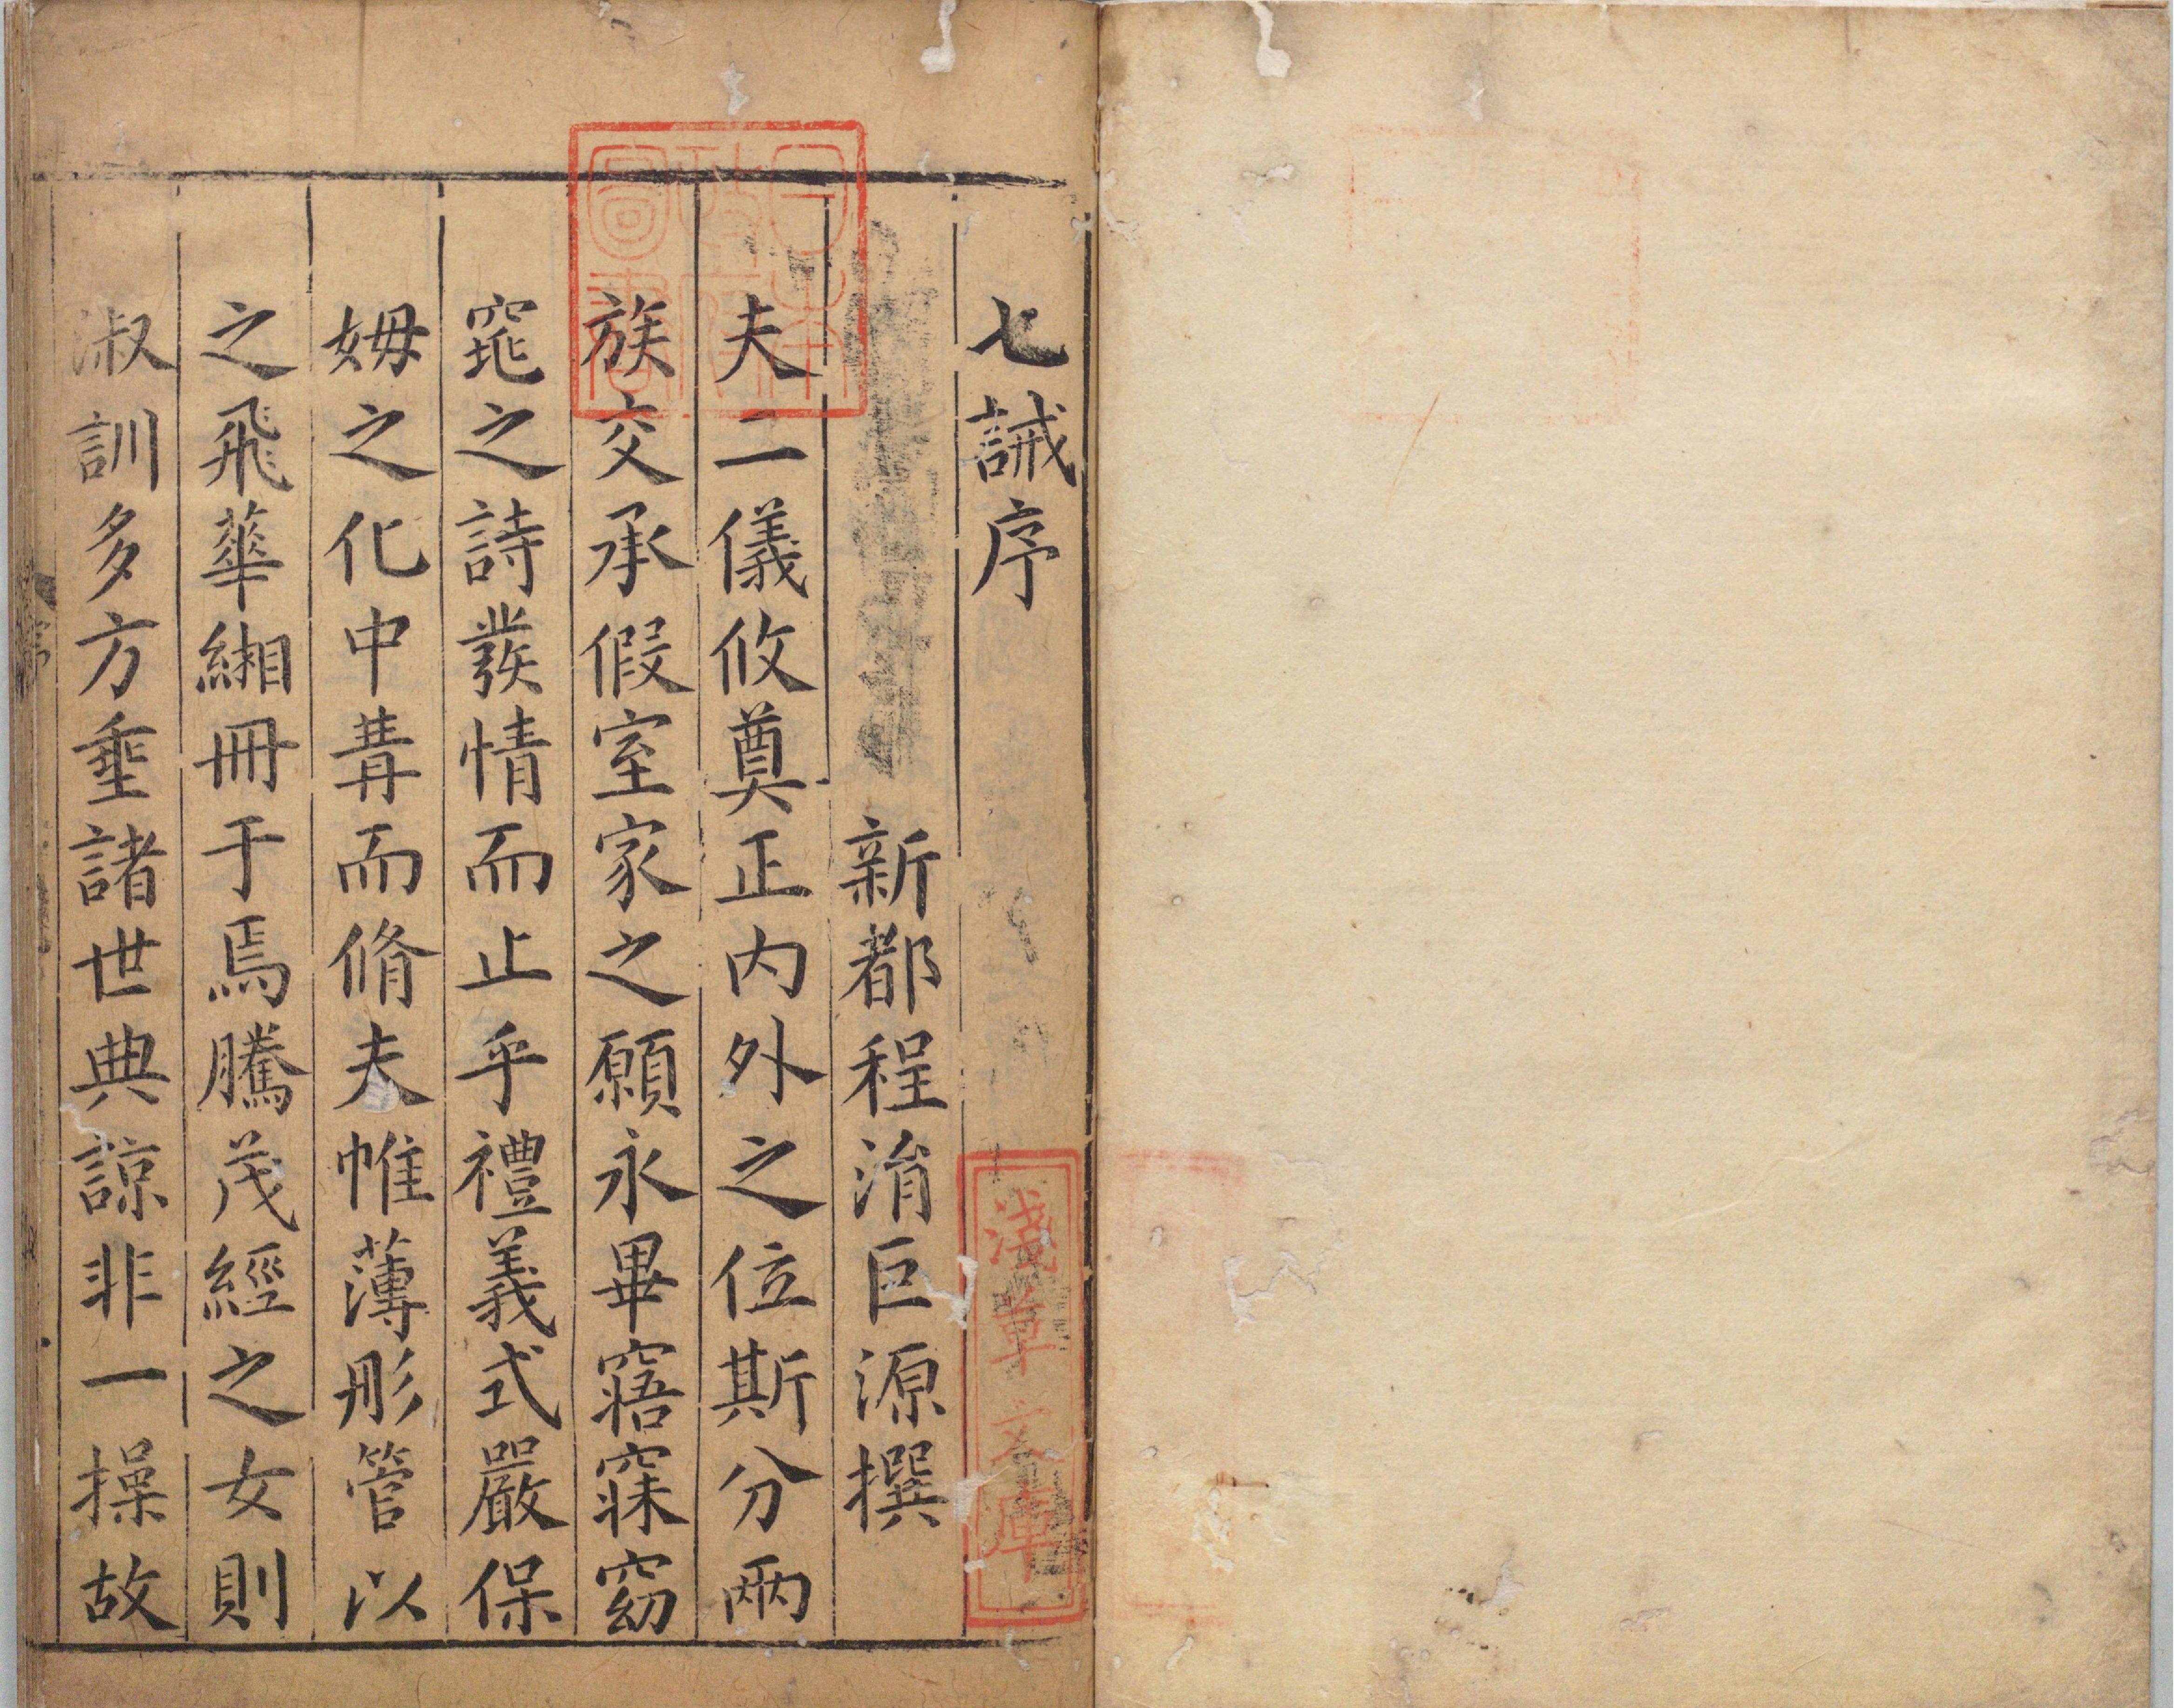 七誡序
新都程涓巨源撰
夫二儀攸奠正内外之位斯分兩
族交承假室家之願永畢寤寐窈
窕之詩發情而止乎禮義式嚴保
姆之化中冓而脩夫帷薄彤管以
之飛華緗冊于焉騰茂經之女則
淑訓多方垂諸世典諒非一操故
日本政府圖書
淺草文庫